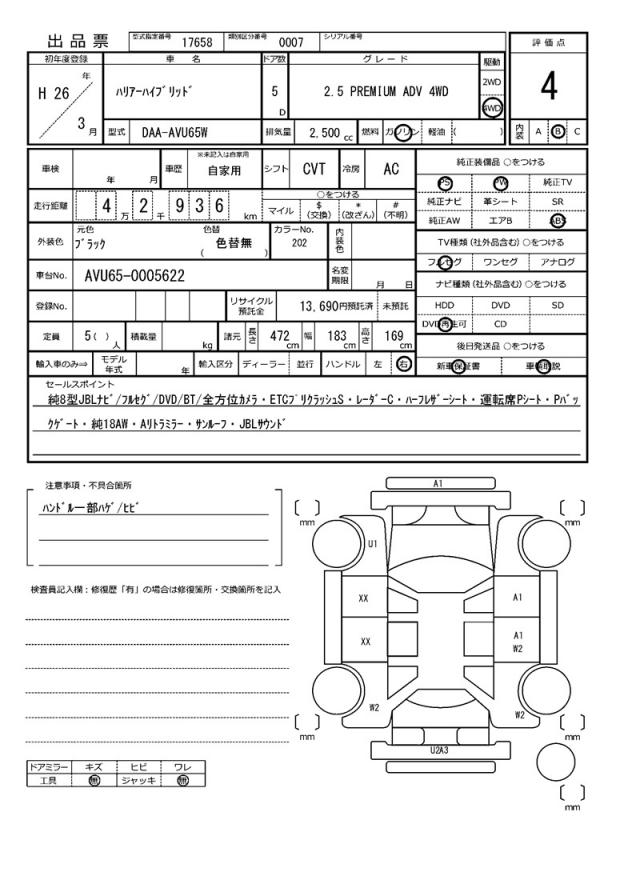 出品票
型式指定番号 17658 類別区分番号 0007 シリアル番号
評価点
4
初年度登録 車名 ドア数 グレード 駆動
H 26 年 3 月
ハリアーハイブリッド 5 D 2.5 PREMIUM ADV 4WD
2WD
4WD
型式 DAA-AVU65W 排気量 2,500 cc 燃料 ガソリン 軽油 ( )
内装 A B C
車検 年 月 車歴 ※未記入は自家用 自家用 シフト CVT 冷房 AC
純正装備品 ○をつける
PS PW 純正TV
純正ナビ 革シート SR
純正AW エアB ABS
走行距離 4 万 2 千 9 3 6 km
○をつける
マイル $(交換) *(改ざん) #(不明)
外装色 元色 ブラック 色替 ( 色替無 ) カラーNo. 202 内装色
TV種類 (社外品含む) ○をつける
フルセグ ワンセグ アナログ
車台No. AVU65-0005622 名変期限 月 日
ナビ種類 (社外品含む) ○をつける
HDD DVD SD
DVD再生可 CD
登録No. リサイクル預託金 13,690円預託済 未預託
定員 5( ) 人 積載量 kg 諸元 長さ 472 cm 幅 183 cm 高さ 169 cm
後日発送品 ○をつける
新車保証書 車輌取説
輸入車のみ⇒ モデル年式 年 輸入区分 ディーラー 並行 ハンドル 左 右
セールスポイント
純8型JBLナビ/フルセグ/DVD/BT/全方位カメラ・ETCプリクラッシュS・レーダーC・ハーフレザーシート・運転席Pシート・Pバッ
クゲート・純18AW・Aリトラミラー・サンルーフ・JBLサウンド
注意事項・不具合箇所
ハンドル一部ハゲ/ヒビ
検査員記入欄：修復歴「有」の場合は修復箇所・交換箇所を記入
A1
mm mm
U1
XX A1
XX A1
W2
W2 W2
mm mm
U2A3
mm
ドアミラー キズ ヒビ ワレ
工具 無 ジャッキ 無